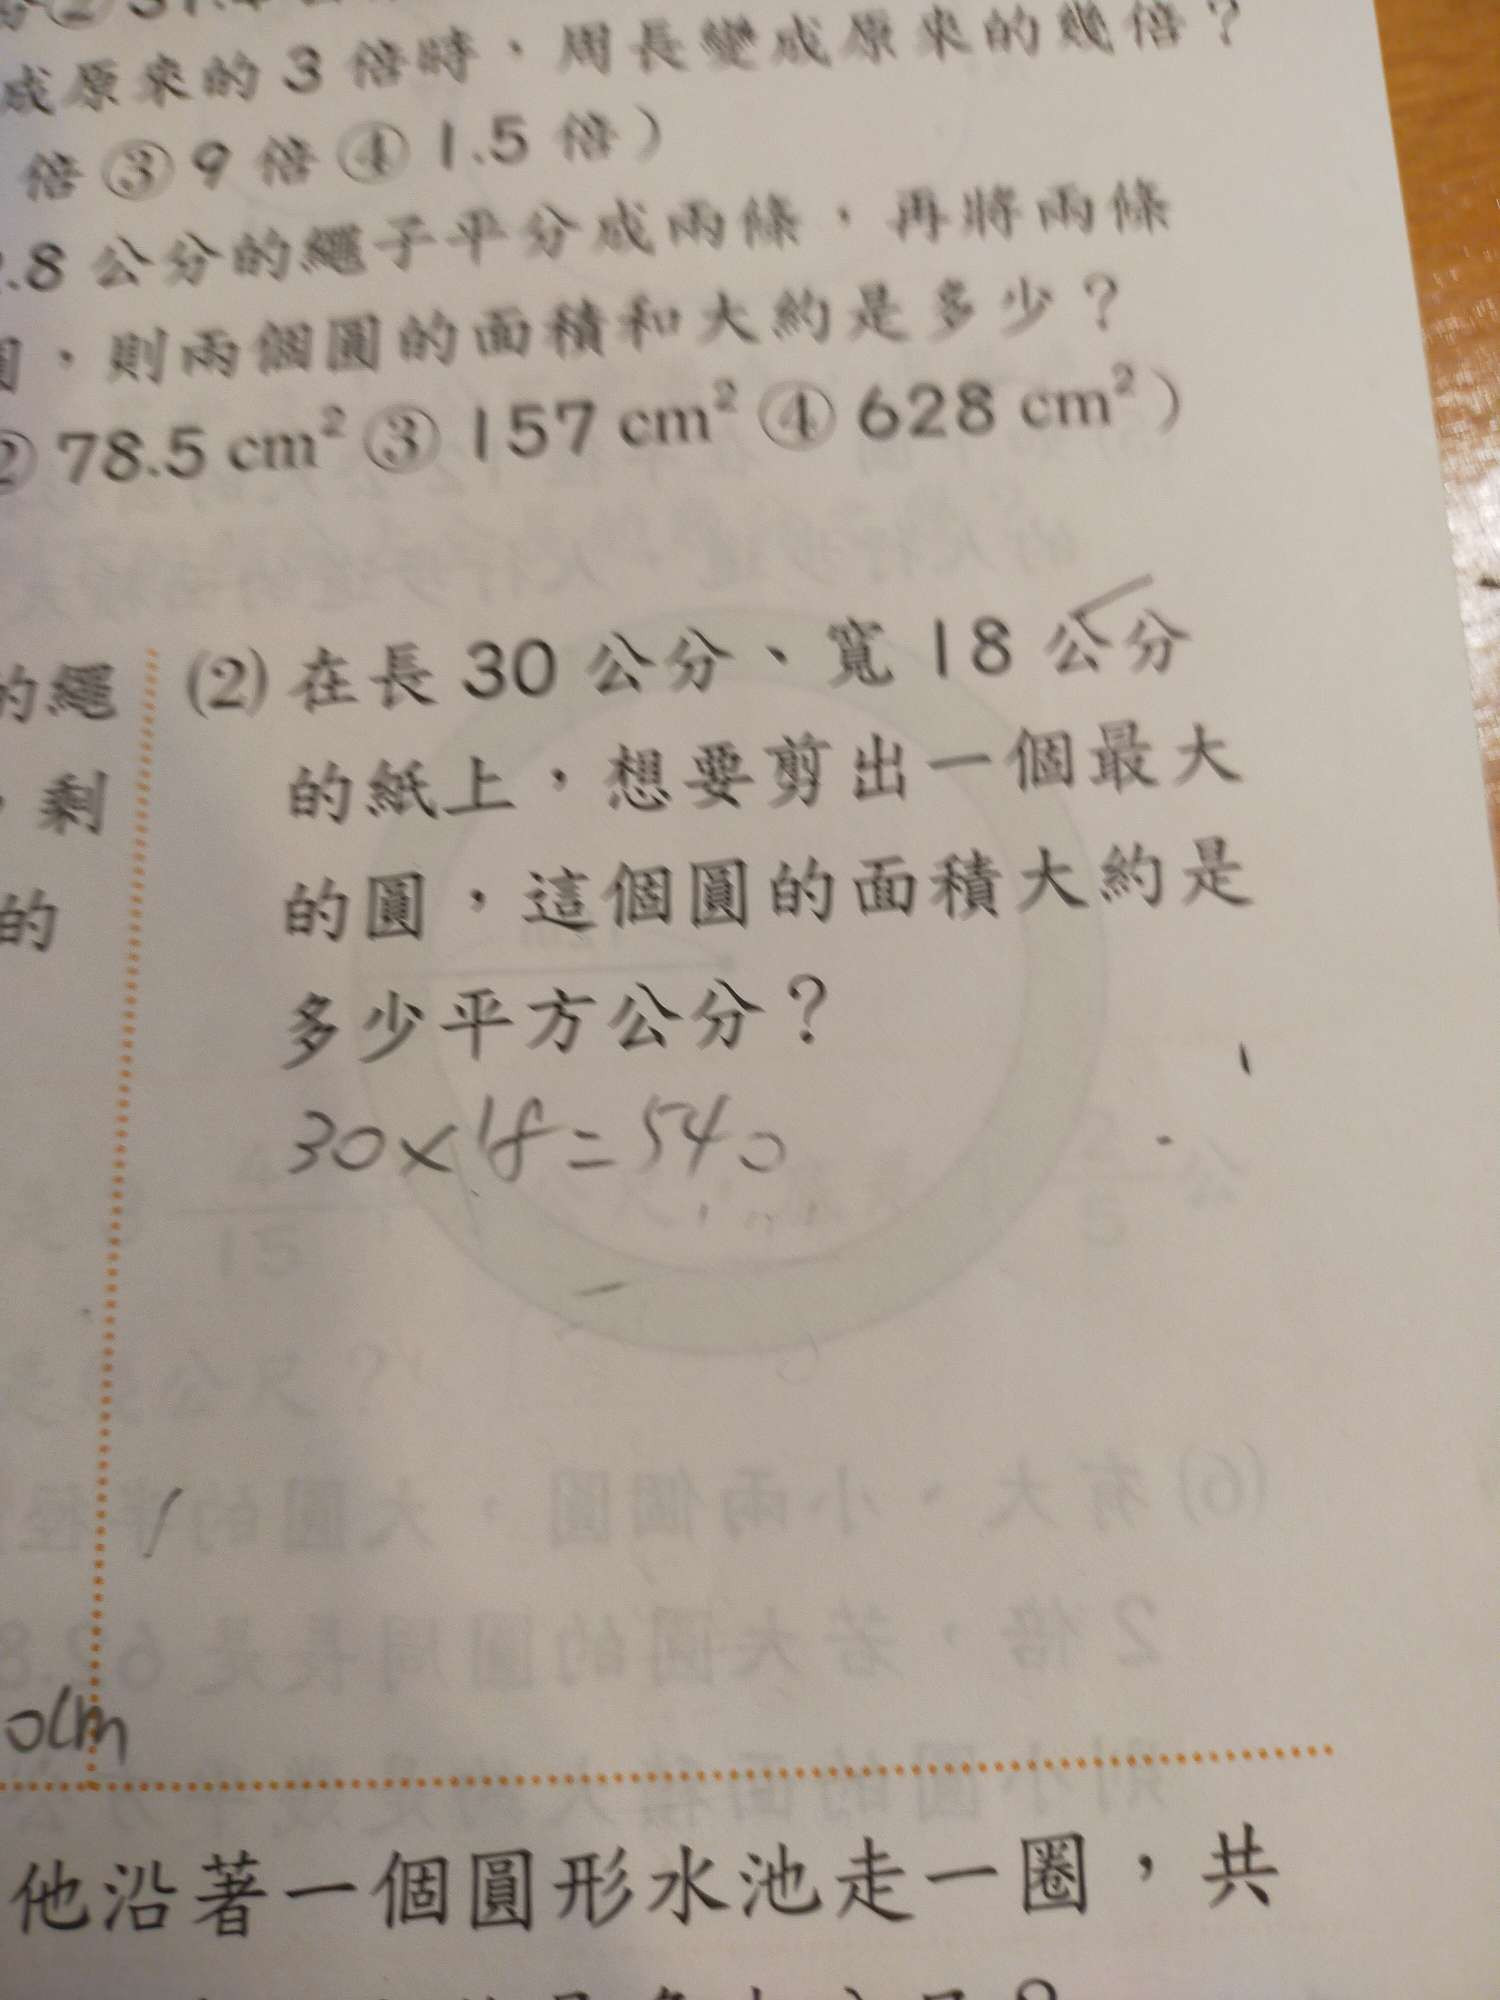 成原來的 3 倍時，周長變成原來的幾倍？
倍③ 9 倍④ 1.5 倍）
.8 公分的繩子平分成兩條，再將兩條
，則兩個圓的面積和大約是多少？
② 78.5 cm² ③ 157 cm² ④ 628 cm²）
的繩
剩
的
(2) 在長 30 公分、寬 18 公分
的紙上，想要剪出一個最大
的圓，這個圓的面積大約是
多少平方公分？
30×18=540
0cm
他沿著一個圓形水池走一圈，共